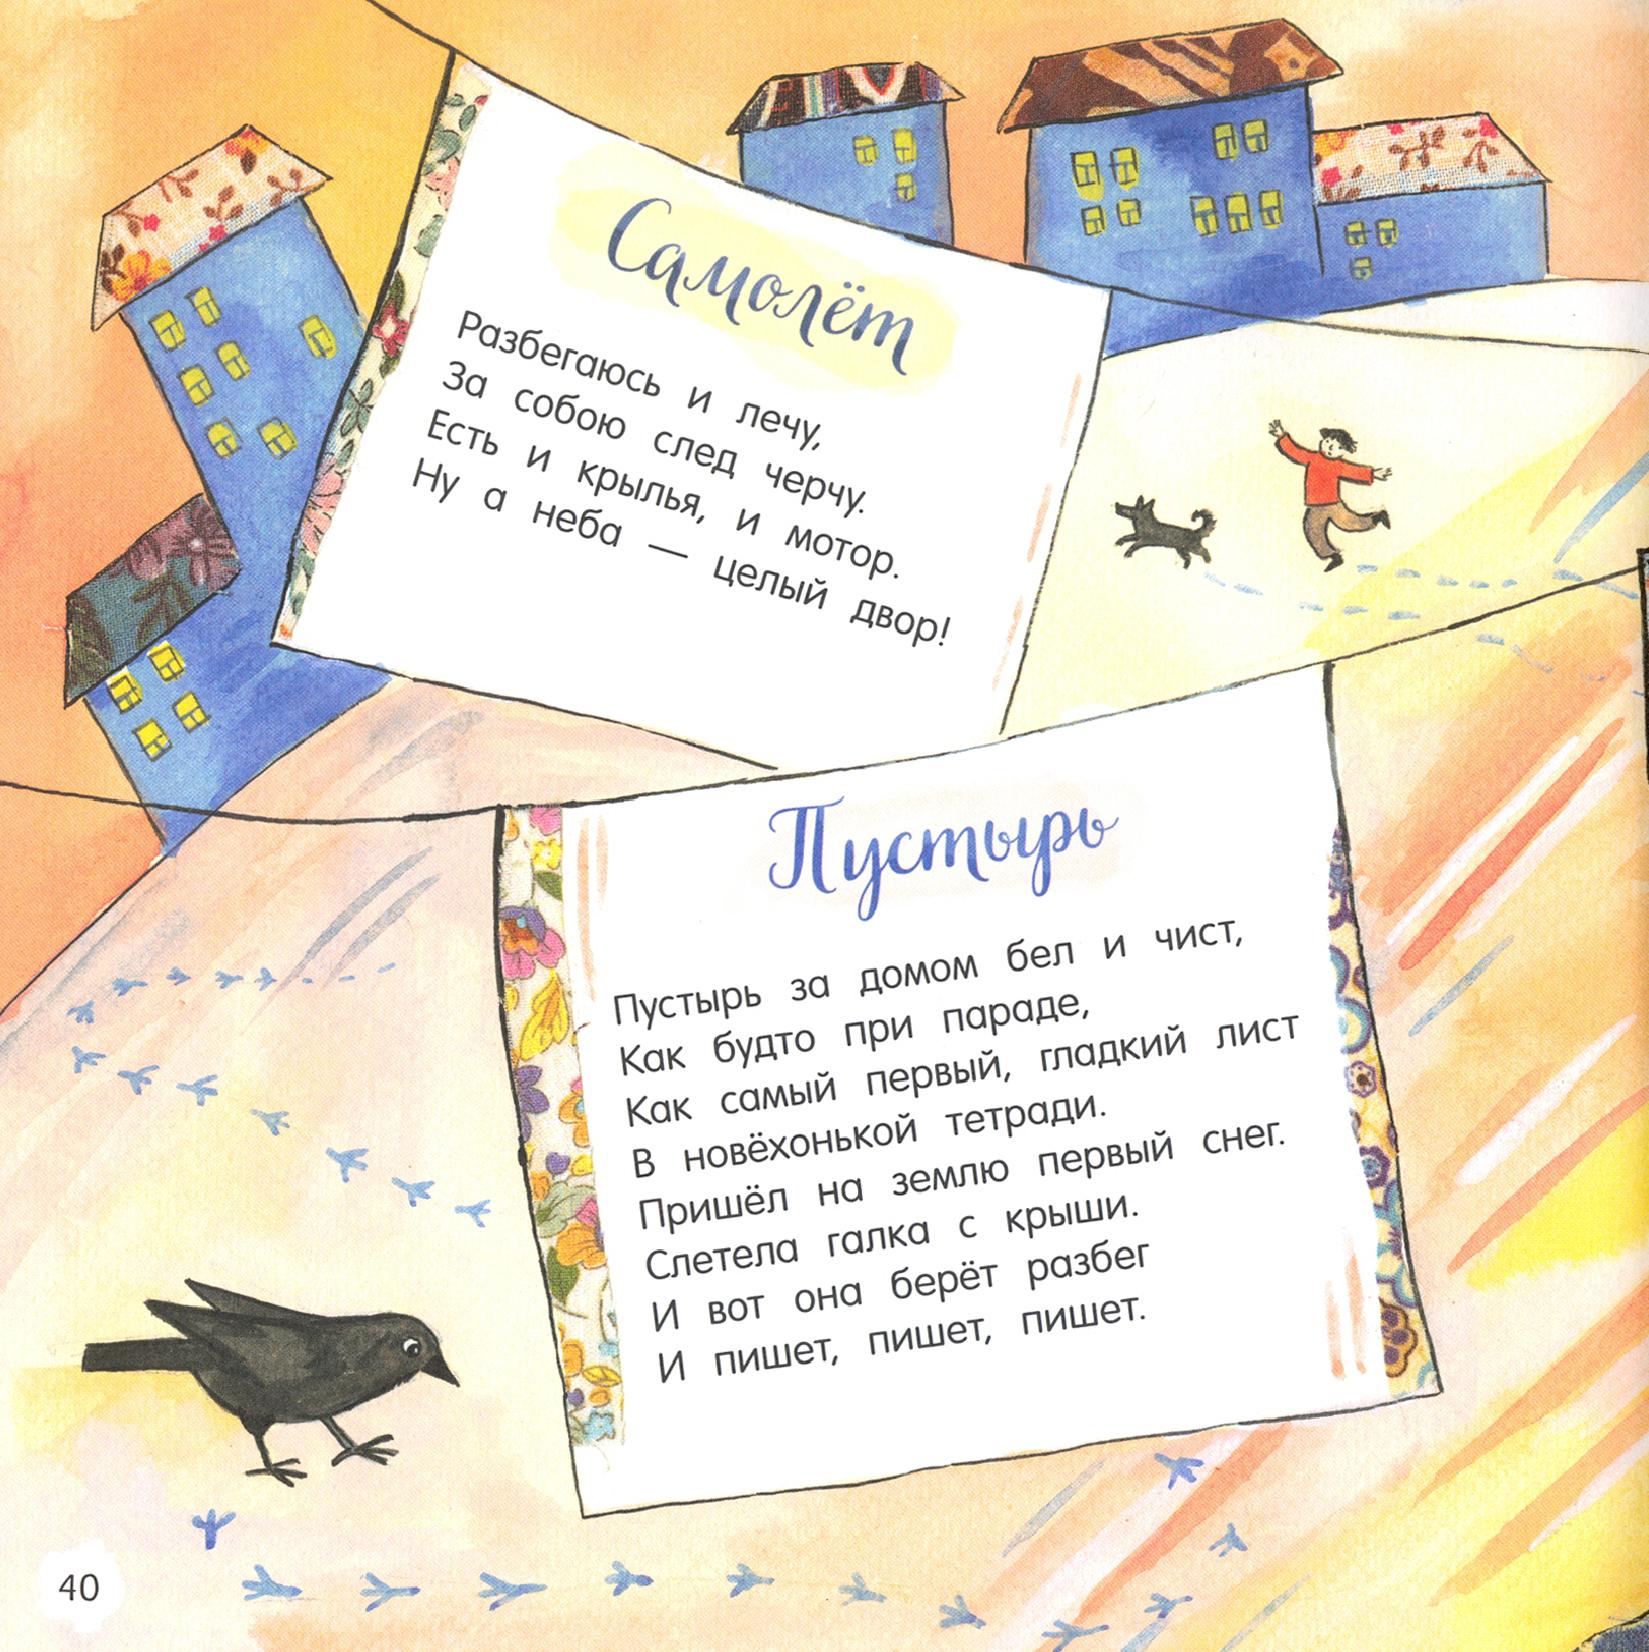 Самолёт
Разбегаюсь и лечу,
За собою след черчу.
Есть и крылья, и мотор.
Ну а неба — целый двор!
Пустырь
Пустырь за домом бел и чист,
Как будто при параде,
Как самый первый, гладкий лист
В новёхонькой тетради.
Пришёл на землю первый снег.
Слетела галка с крыши.
И вот она берёт разбег
И пишет, пишет, пишет.
40